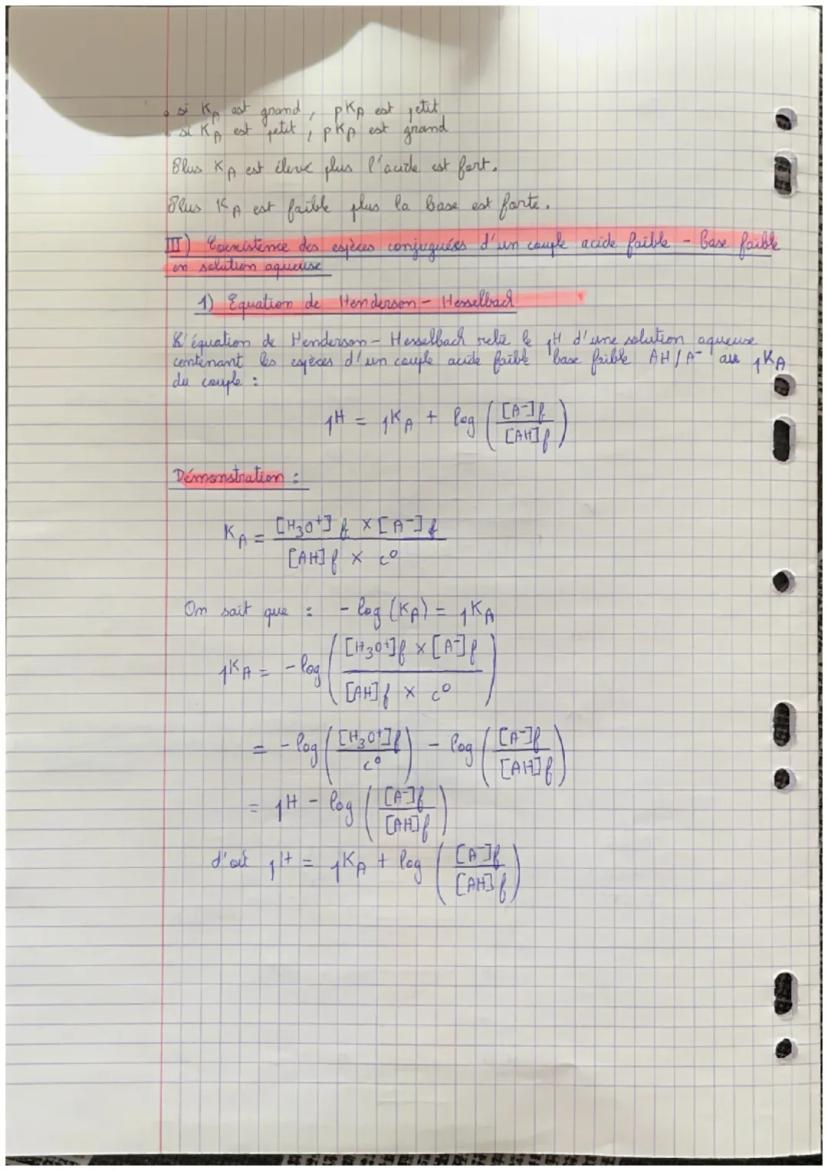 • si KA est grand, pKA est petit
• si KA est petit, pKA est grand
Plus KA est élevé plus l'acide est fort.
Plus KA est faible plus la base est forte.
III) Coexistence des espèces conjuguées d'un couple acide faible - base faible
en solution aqueuse
1) Equation de Henderson - Hesselbach
L'équation de Henderson - Hesselbach relie le pH d'une solution aqueuse
contenant les espèces d'un couple acide faible base faible AH/A⁻ au pKA
du couple :
pH = pKA + log ([A⁻]f / [AH]f)
Démonstration :
KA = [H3O⁺]f × [A⁻]f / [AH]f × c⁰
On sait que : - log (KA) = pKA
pKA = - log ([H3O⁺]f × [A⁻]f / [AH]f × c⁰)
= - log ([H3O⁺]f / c⁰) - log ([A⁻]f / [AH]f)
= pH - log ([A⁻]f / [AH]f)
d'où pH = pKA + log ([A⁻]f / [AH]f)